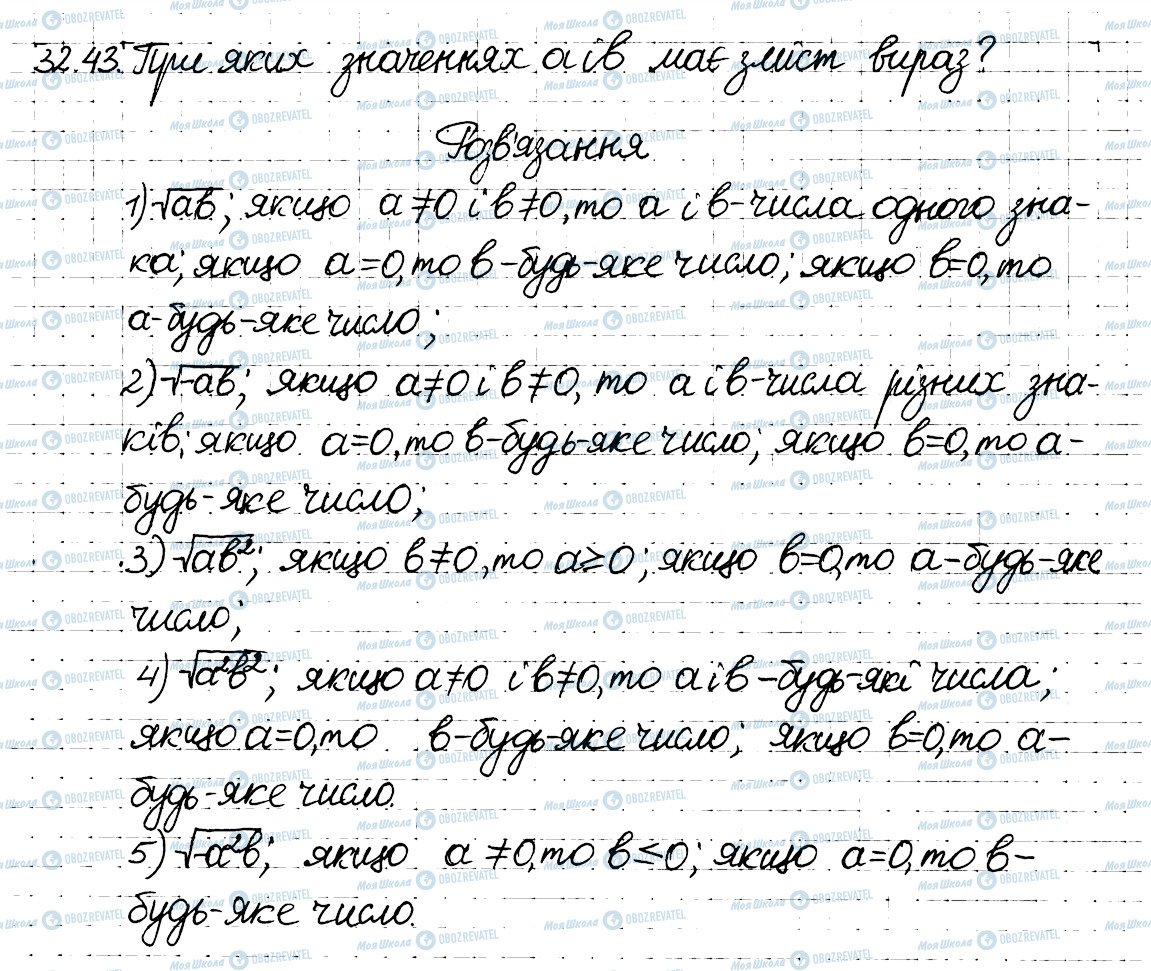 32.43. При яких значеннях a і b має зміст вираз?
Розв'язання
1) √ab; якщо a≠0 і b≠0, то a і b-числа одного зна-
ка; якщо a=0, то b-будь-яке число; якщо b=0, то
a-будь-яке число;
2) √-ab; якщо a≠0 і b≠0, то a і b-числа різних зна-
ків; якщо a=0, то b-будь-яке число; якщо b=0, то a-
будь-яке число;
3) √ab²; якщо b≠0, то a≥0; якщо b=0, то a-будь-яке
число;
4) √a²b²; якщо a≠0 і b≠0, то a і b-будь-які числа;
якщо a=0, то b-будь-яке число; якщо b=0, то a-
будь-яке число.
5) √-a²b; якщо a≠0, то b≤0; якщо a=0, то b-
будь-яке число.